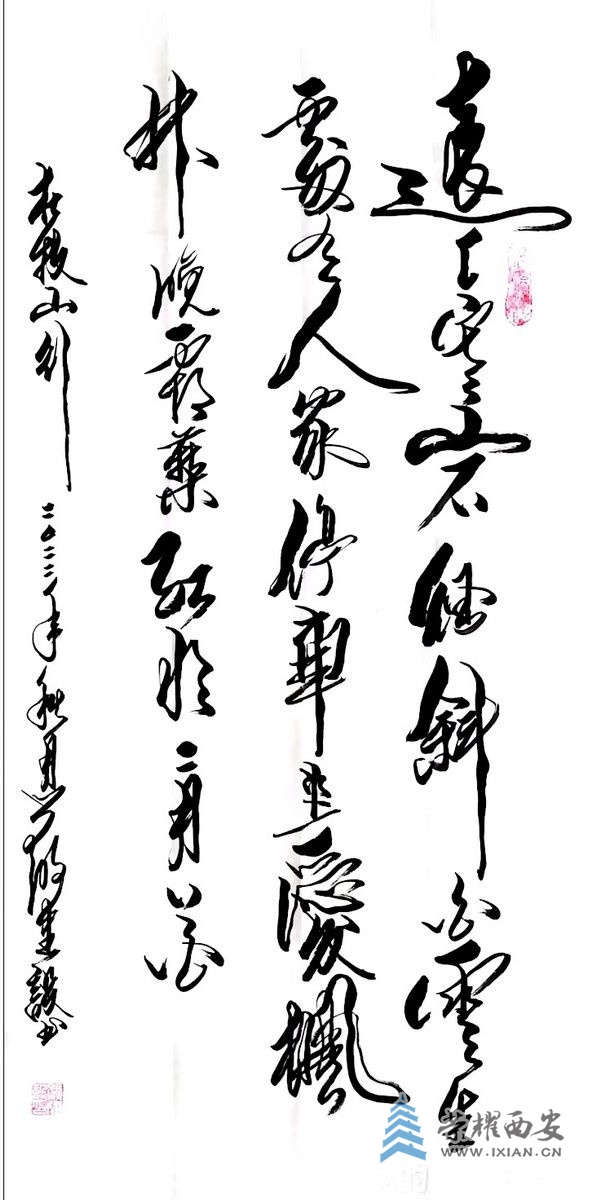 遠上寒山石徑斜白雲生
處有人家停車坐愛楓
林晚霜葉紅於二月花
杜牧山行 二〇二二年秋月
荣耀西安
WWW.IXIAN.CN